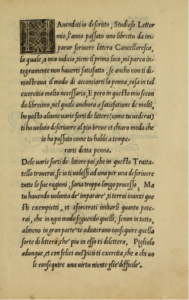 Havendoti io descritto, Studioso Lettor
mio, l'anno passato uno libretto da im=
parar scrivere littera Cancellaresca,
la quale, a mio iudicio, tiene il primo loco, mi parea in=
tegramente non haverti satisfatto, se anche non ti di=
mostrava il modo di acconciarti la penna, cosa in tal
exercitio molto necessaria, E pero in questo mio secon
do librecino, nel quale anchora a satisfattione di molti,
ho posto alcune varie sorti di lettere (come tu vederai)
ti ho voluto descrivere al piu breve et chiaro modo che
io ho possuto come tu habbi a tempe=
rarti detta penna.
Dele varie sorti de lettere poi, che in questo Tratta=
tello trovarai, se io ti volessi ad una per una descrivere
tutte le sue ragioni, saria troppo longo processo, Ma
tu havendo volunta de imparare, ti terrai inanzi que
sti exempietti, et sforcerati imitarli quanto pote
rai, che in ogni modo seguendo quelli, se non in tutto,
almeno in gran parte te adiuteranno conseguire quella
sorte di littera, che piu in esso ti diletterà, Piglialo
adunque, et con felici auspicii ti exercita, che a chi vo
le conseguire una virtu niente gliè difficile.